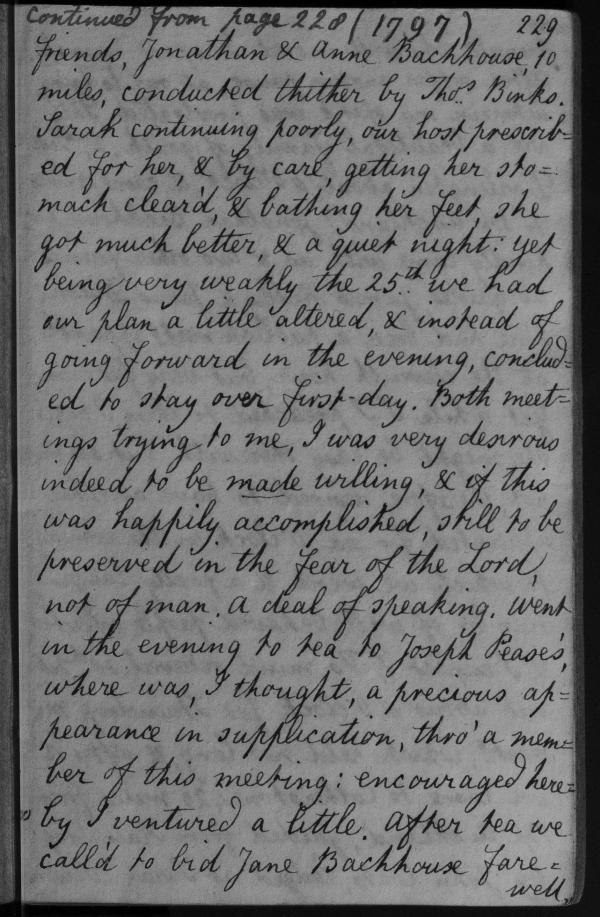 continued from page 228 (1797) 229
friends, Jonathan & Anne Backhouse, 10
miles, conducted thither by Thos. Binks.
Sarah continuing poorly, our host prescrib=
ed for her, & by care, getting her sto=
mach clear'd, & bathing her feet, she
got much better, & a quiet night: yet
being very weakly the 25th. we had
our plan a little altered, & instead of
going forward in the evening, conclud=
ed to stay over first-day. Both meet=
ings trying to me, I was very desirous
indeed to be made willing, & if this
was happily accomplished, still to be
preserved in the fear of the Lord,
not of man. A deal of speaking. Went
in the evening to tea to Joseph Pease's,
where was, I thought, a precious ap=
pearance in supplication, thro' a mem=
ber of this meeting: encouraged here=
by I ventured a little. After tea we
call'd to bid Jane Backhouse fare=
well,